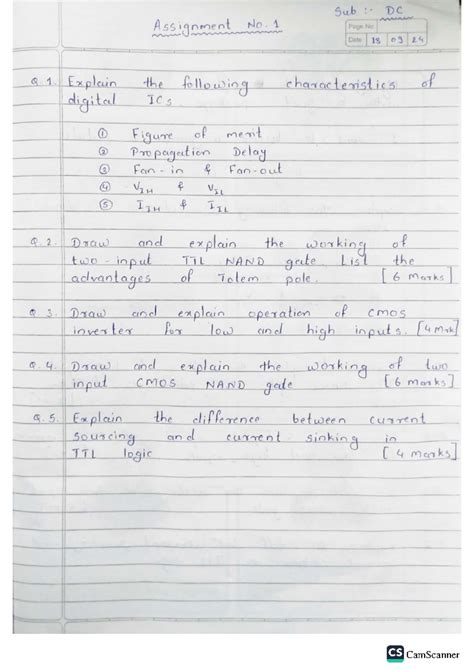 Sub :- DC
Assignment No. 1
Page No:
Date 18 09 24
Q. 1. Explain the following characteristics of
digital ICs
① Figure of merit
② Propagation Delay
③ Fan-in & Fan-out
④ VIH & VIL
⑤ IIH & IIL
Q. 2. Draw and explain the working of
two-input TTL NAND gate. List the
advantages of Totem pole. [6 Marks]
Q 3. Draw and explain operation of CMOS
inverter for low and high inputs. [4 Mrk]
Q. 4. Draw and explain the working of two
input CMOS NAND gate [6 marks]
Q. 5. Explain the difference between current
sourcing and current sinking in
TTL logic [4 marks]
CS CamScanner